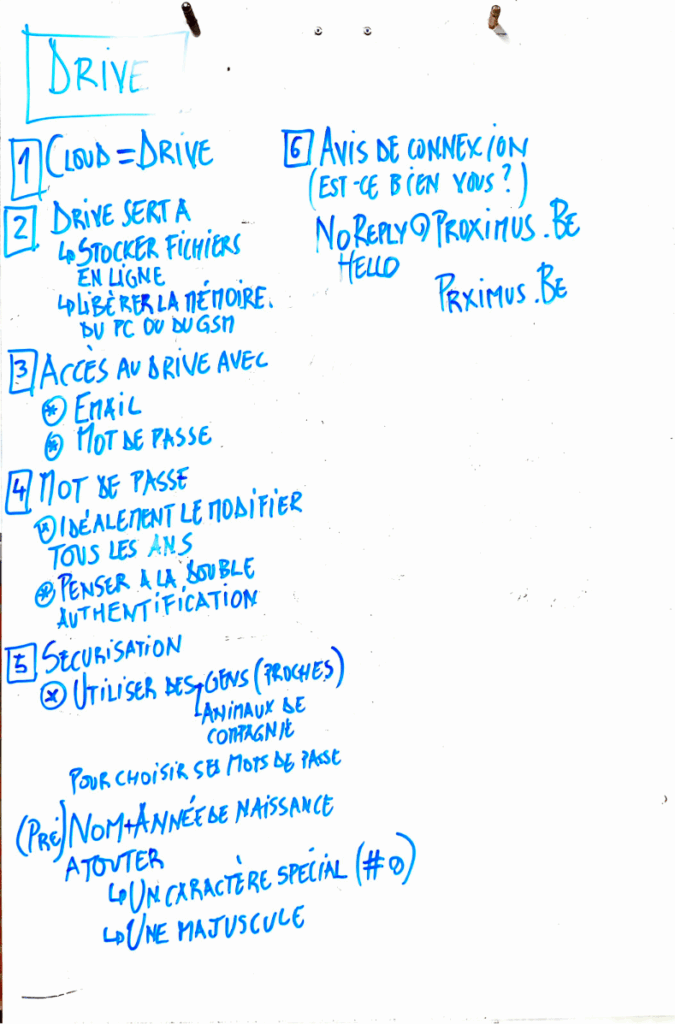 DRIVE
1 CLOUD = DRIVE
2 DRIVE SERT A
↳ STOCKER FICHIERS
EN LIGNE
↳ LIBÈRER LA MÉMOIRE.
DU PC OU DU GSM
3 ACCÈS AU DRIVE AVEC
* EMAIL
* MOT DE PASSE
4 MOT DE PASSE
* IDÉALEMENT LE MODIFIER
TOUS LES ANS
* PENSER A LA DOUBLE
AUTHENTIFICATION
5 SECURISATION
* UTILISER DES GENS (PROCHES)
ANIMAUX DE
COMPAGNIE
POUR CHOISIR SES MOTS DE PASSE
(PRÉ) NOM + ANNÉE DE NAISSANCE
AJOUTER
↳ UN CARACTÈRE SPÉCIAL (# @)
↳ UNE MAJUSCULE
6 AVIS DE CONNEXION
(EST-CE BIEN VOUS ?)
NOREPLY@PROXIMUS.BE
HELLO
PRXIMUS.BE